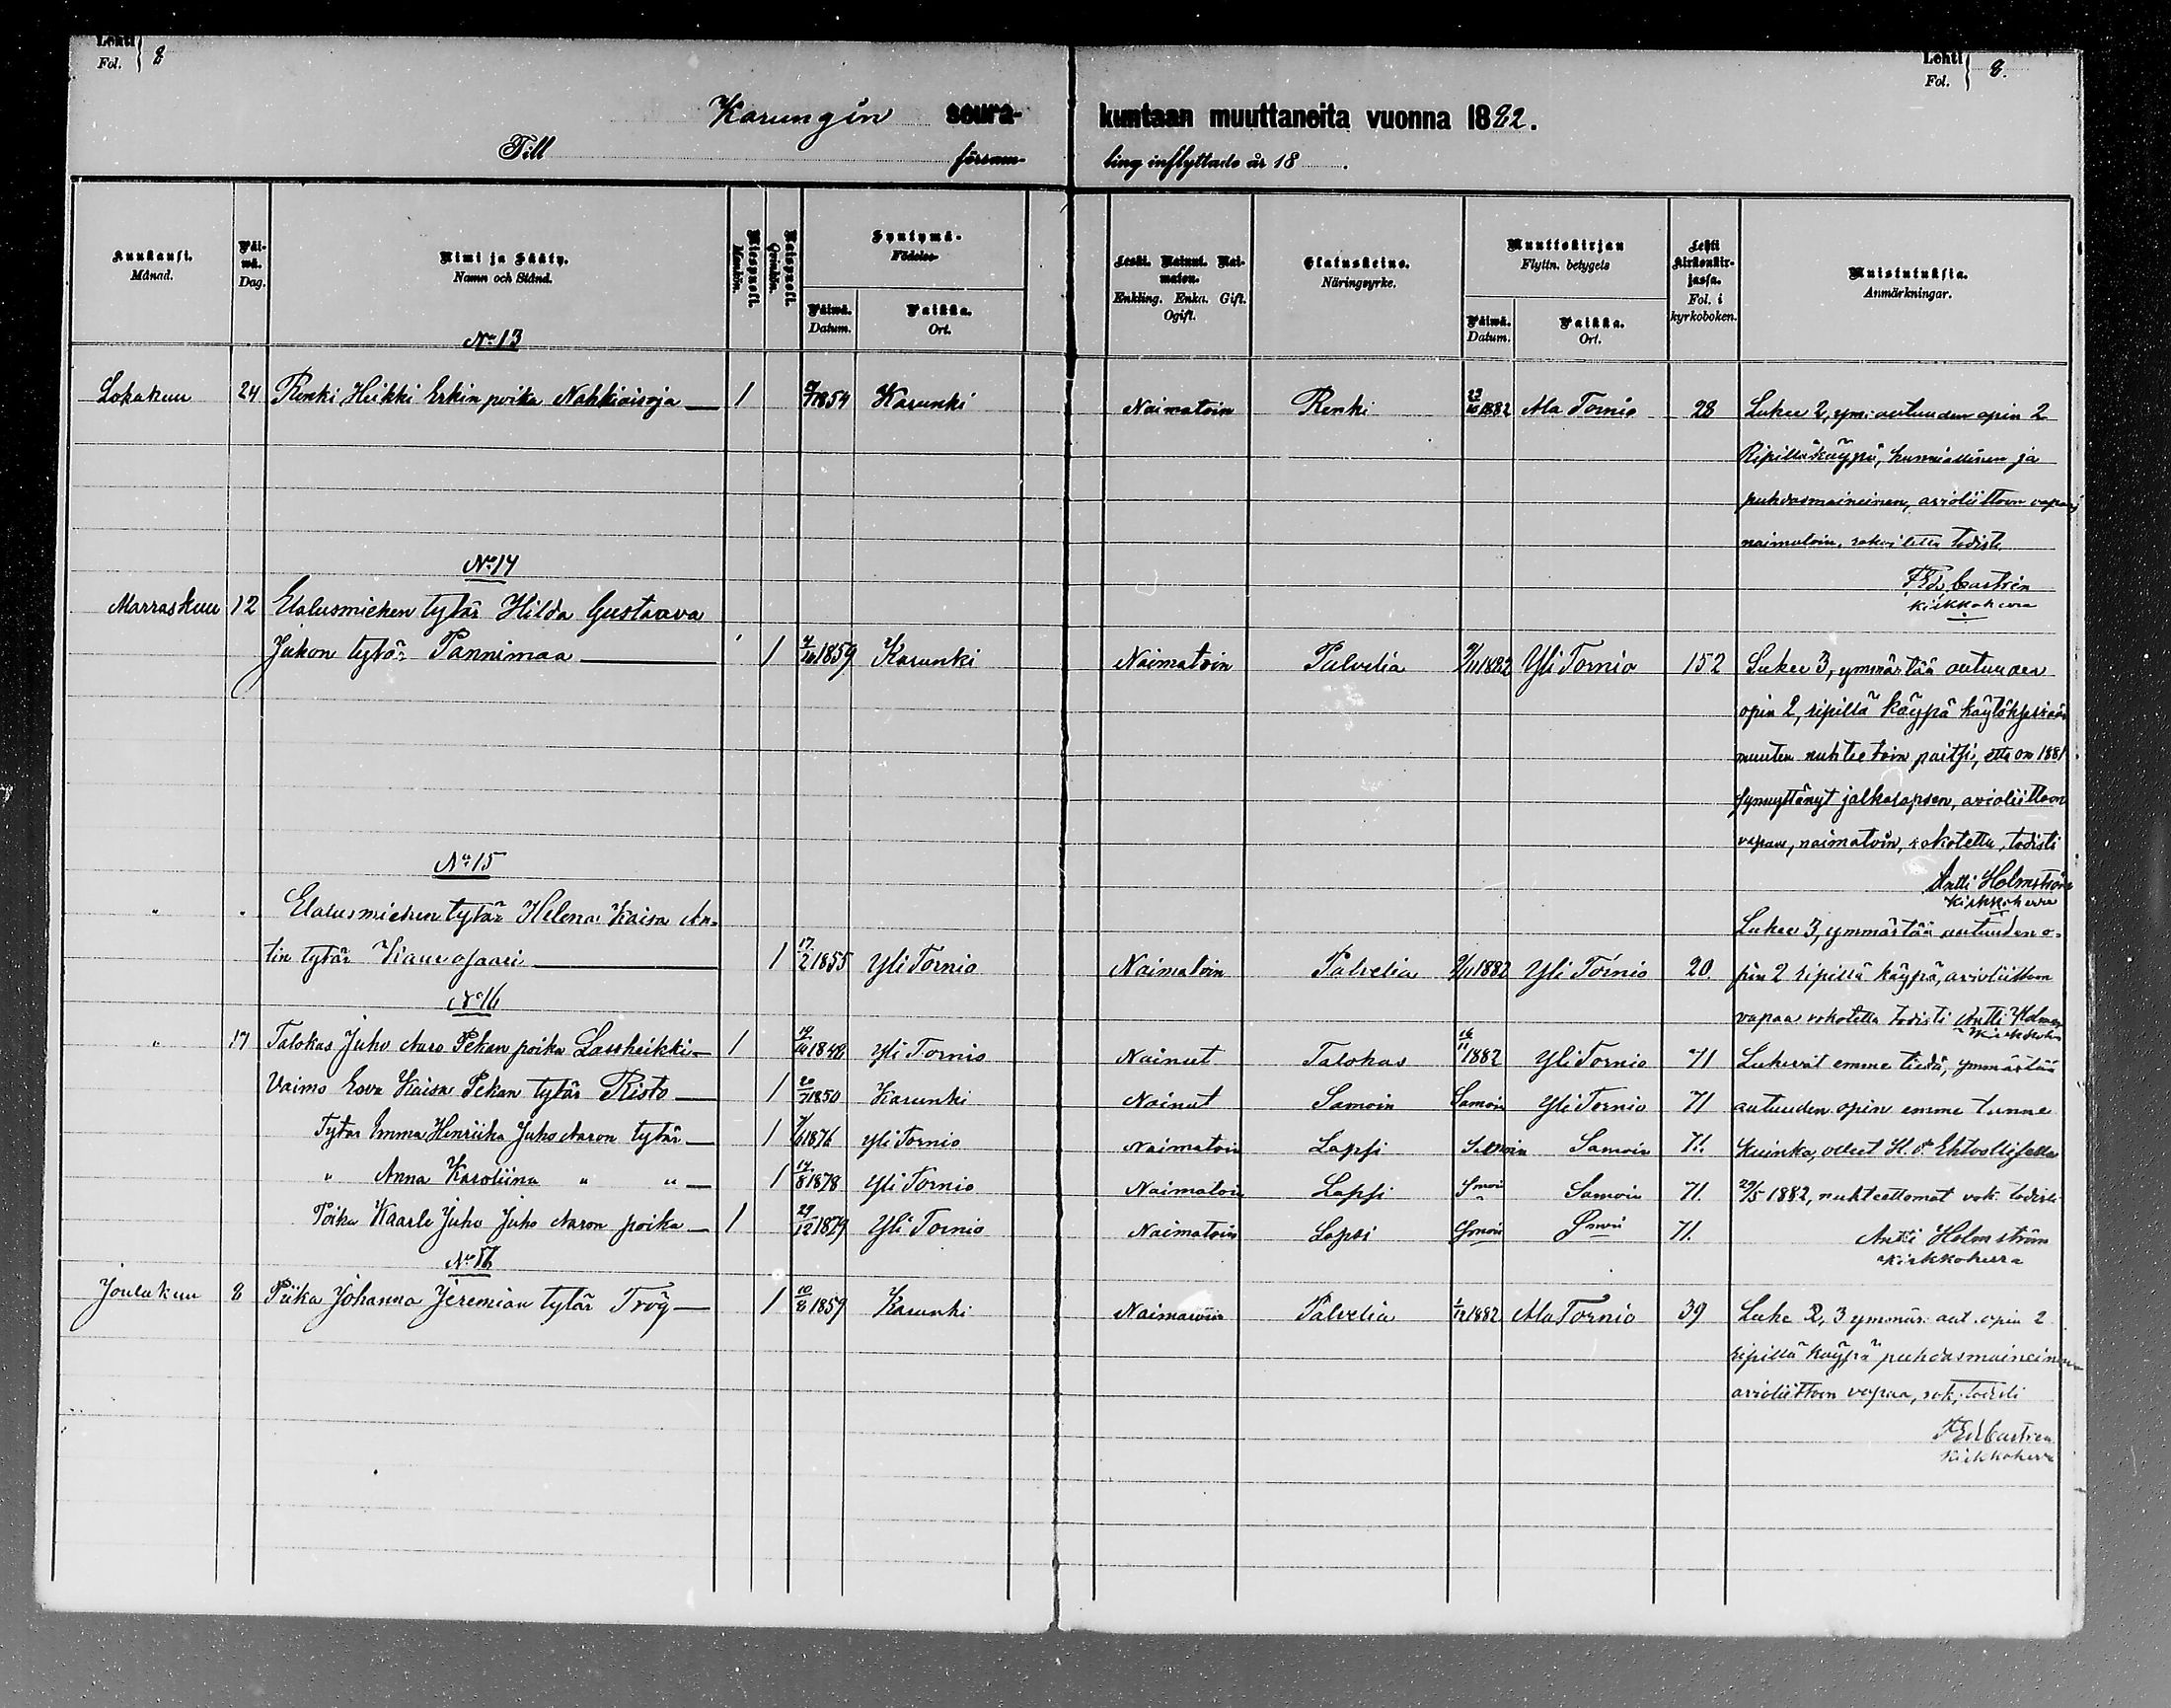 Lehti Fol. 8
Lehti Fol. 8.
Karungin seura-kuntaan muuttaneita vuonna 1882.
Till församling inflyttade år 18 .
Kuukausi. Månad.
Päivä. Dag.
Nimi ja Sääty. Namn och Stånd.
Miespuoli. Mankön.
Naispuoli. Qvinkön.
Syntymä- Födelse-
Päivä. Datum.
Paikka. Ort.
Leski. Nainut. Naimaton. Enkling. Enka. Gift. Ogift.
Elatuskeino. Näringsyrke.
Muuttokirjan Flyttn. betygets
Päivä. Datum.
Paikka. Ort.
Lehti kirkonkirjassa. Fol. i kyrkoboken.
Muistutuksia. Anmärkningar.
No 13
Lokakuu 24 Renki Heikki Erkin poika Nahkiaisoja 1 1854 Karunki Naimatoin Renki 23/10 1882 Ala Tornio 28 Lukee 2, ym. autuuden opin 2
Ripillä käypä, kunniallinen ja
puhdasmaineinen, avioliittoon vapaa,
naimatoin, todisti
F Ed. Castrén
kirkkoherra
No 14
Marraskuu 12 Elatusmiehen tytär Hilda Gustaava
Juhon tytär Pannimaa 1 1859 Karunki Naimatoin Palvelia 9/11 1882 Yli Tornio 152 Lukee 3, ymmärtää autuuden
opin 2, ripillä käypä
muuten nuhteetoin paitsi, että on 1881
synnyttänyt jalkalapsen, avioliittoon
vapaa, naimatoin, rokotettu, todisti
Antti Holmström
kirkkoherra
No 15
" " Elatusmiehen tytär Helena Kaisa An-
tin tytär 1 17/2 1855 Yli Tornio Naimatoin Palvelia 9/11 1882 Yli Tornio 20 Lukee 3, ymmärtää autuuden o-
pin 2 ripillä käypä, avioliittoon
vapaa rokotettu todisti Antti Holmst
Kirkkoh
No 16
" 17 Talokas Juho Aaro Pekan poika Lassheikki 1 1848 Yli Tornio Nainut Talokas 16/11 1882 Yli Tornio 71 Lukevat emme tiedä, ymmärtää
Vaimo Eeva Kaisa Pekan tytär Risto 1 20/7 1850 Karunki Nainut Samoin Samoin Yli Tornio 71 autuuden opin emme tunne
Tytär Emma Henriika Juho Aaron tytär 1 1876 Yli Tornio Naimatoin Lapsi Samoin Samoin 71. Kuinka, olleet H. Ehtoollisella
" Anna Karoliina " " 1 14/8 1878 Yli Tornio Naimatoin Lapsi Smoin Samoin 71. 29/5 1882, nuhteettomat rok. todisti
Poika Kaarle Juho Juho Aaron poika 1 29/12 1879 Yli Tornio Naimatoin Lapsi Smoin Smoin 71. Antti Holmström
kirkkoherra
No 16
Joulukuu 8 Piika Johanna Jeremian tytär Tröy 1 10/8 1859 Karunki Naimatoin Palvelia 1/12 1882 Ala Tornio 39 Luke 2, 3 ymmär. aut. opin 2
ripillä käypä puhdasmaineinen
avioliittoon vapaa, rok, todisti
F Ed Castrén
Kirkkoherra